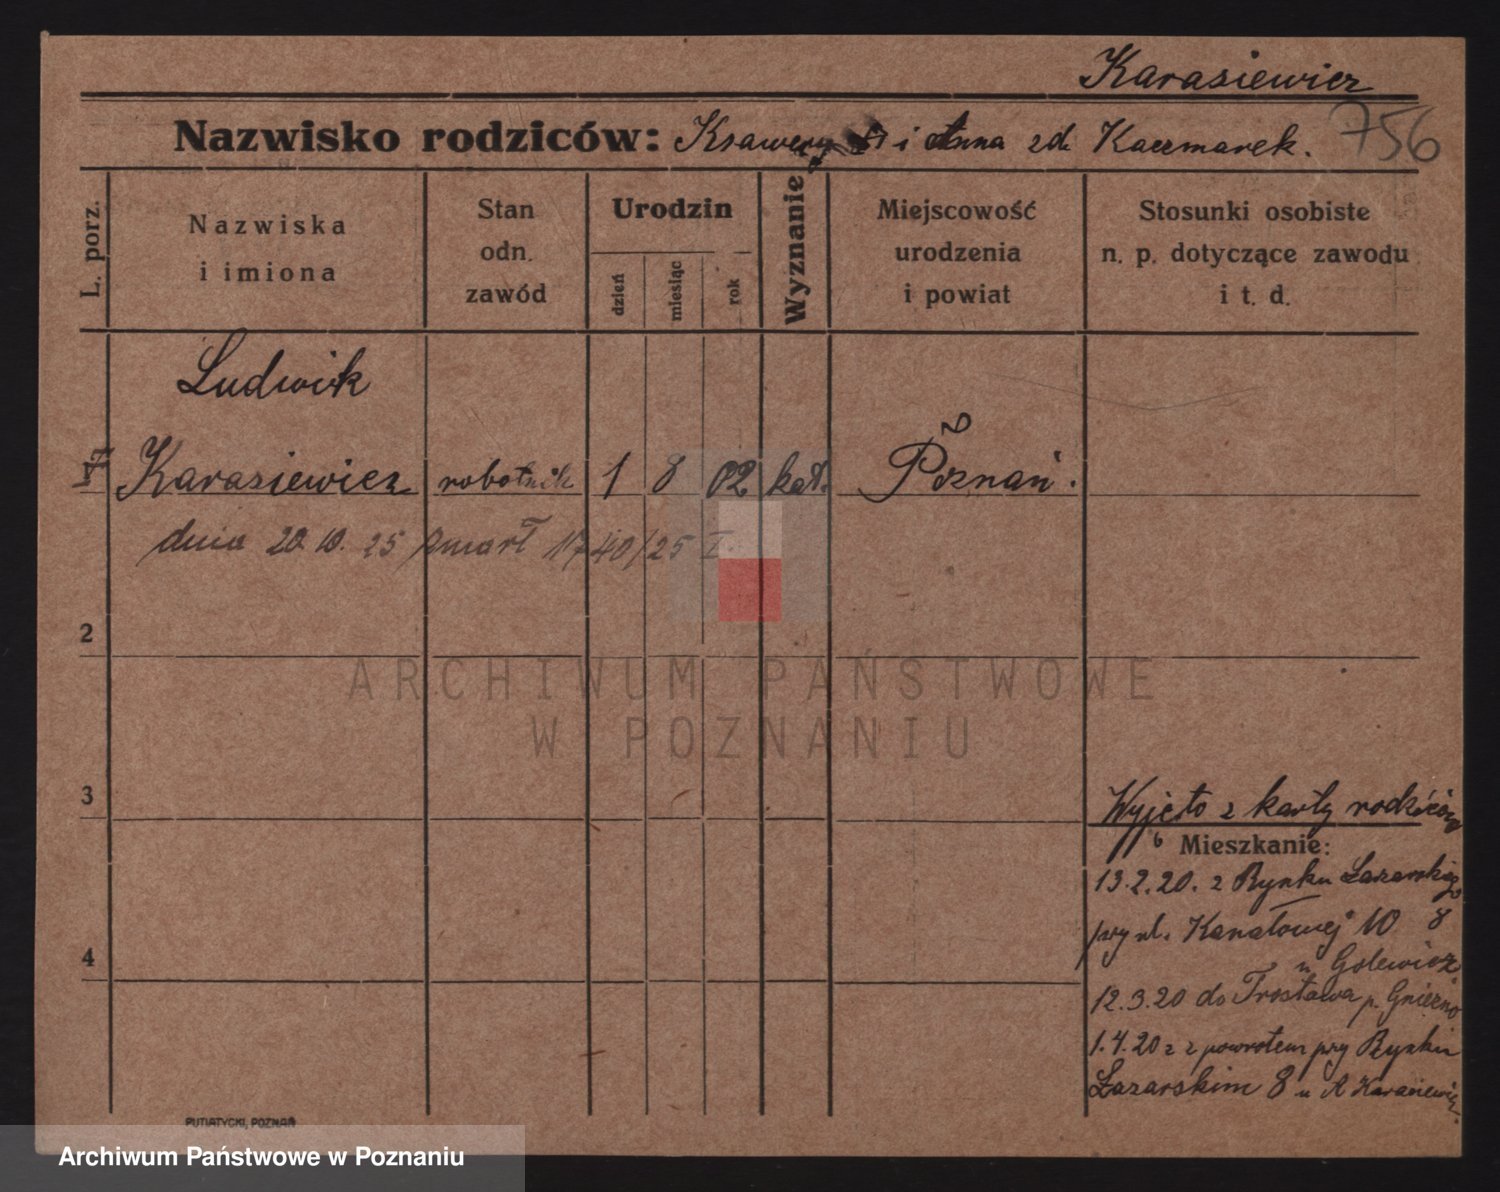 Karasiewicz
Nazwisko rodziców: Ksawery i Anna zd. Kaczmarek.
756
L. porz.
Nazwiska
i imiona
Stan
odn.
zawód
Urodzin
dzień
miesiąc
rok
Wyznanie
Miejscowość
urodzenia
i powiat
Stosunki osobiste
n. p. dotyczące zawodu
i t. d.
Ludwik
Karasiewicz robotnik 1 8 02 kat. Poznań.
dnia 20.10.25 zmarł 1740/25 I.
2
ARCHIWUM PAŃSTWOWE
W POZNANIU
3
Wyjęto z karty rodziców
Mieszkanie:
13.2.20. z Rynku Łazarskiego 8
przy ul. Kanałowej 10
u Golewicz
4
12.3.20 do p. Gniezno
1.4.20 z powrotem przy Rynku
Łazarskim 8 u A Karasiewicz.
PUTIATYCKI, POZNAŃ
Archiwum Państwowe w Poznaniu